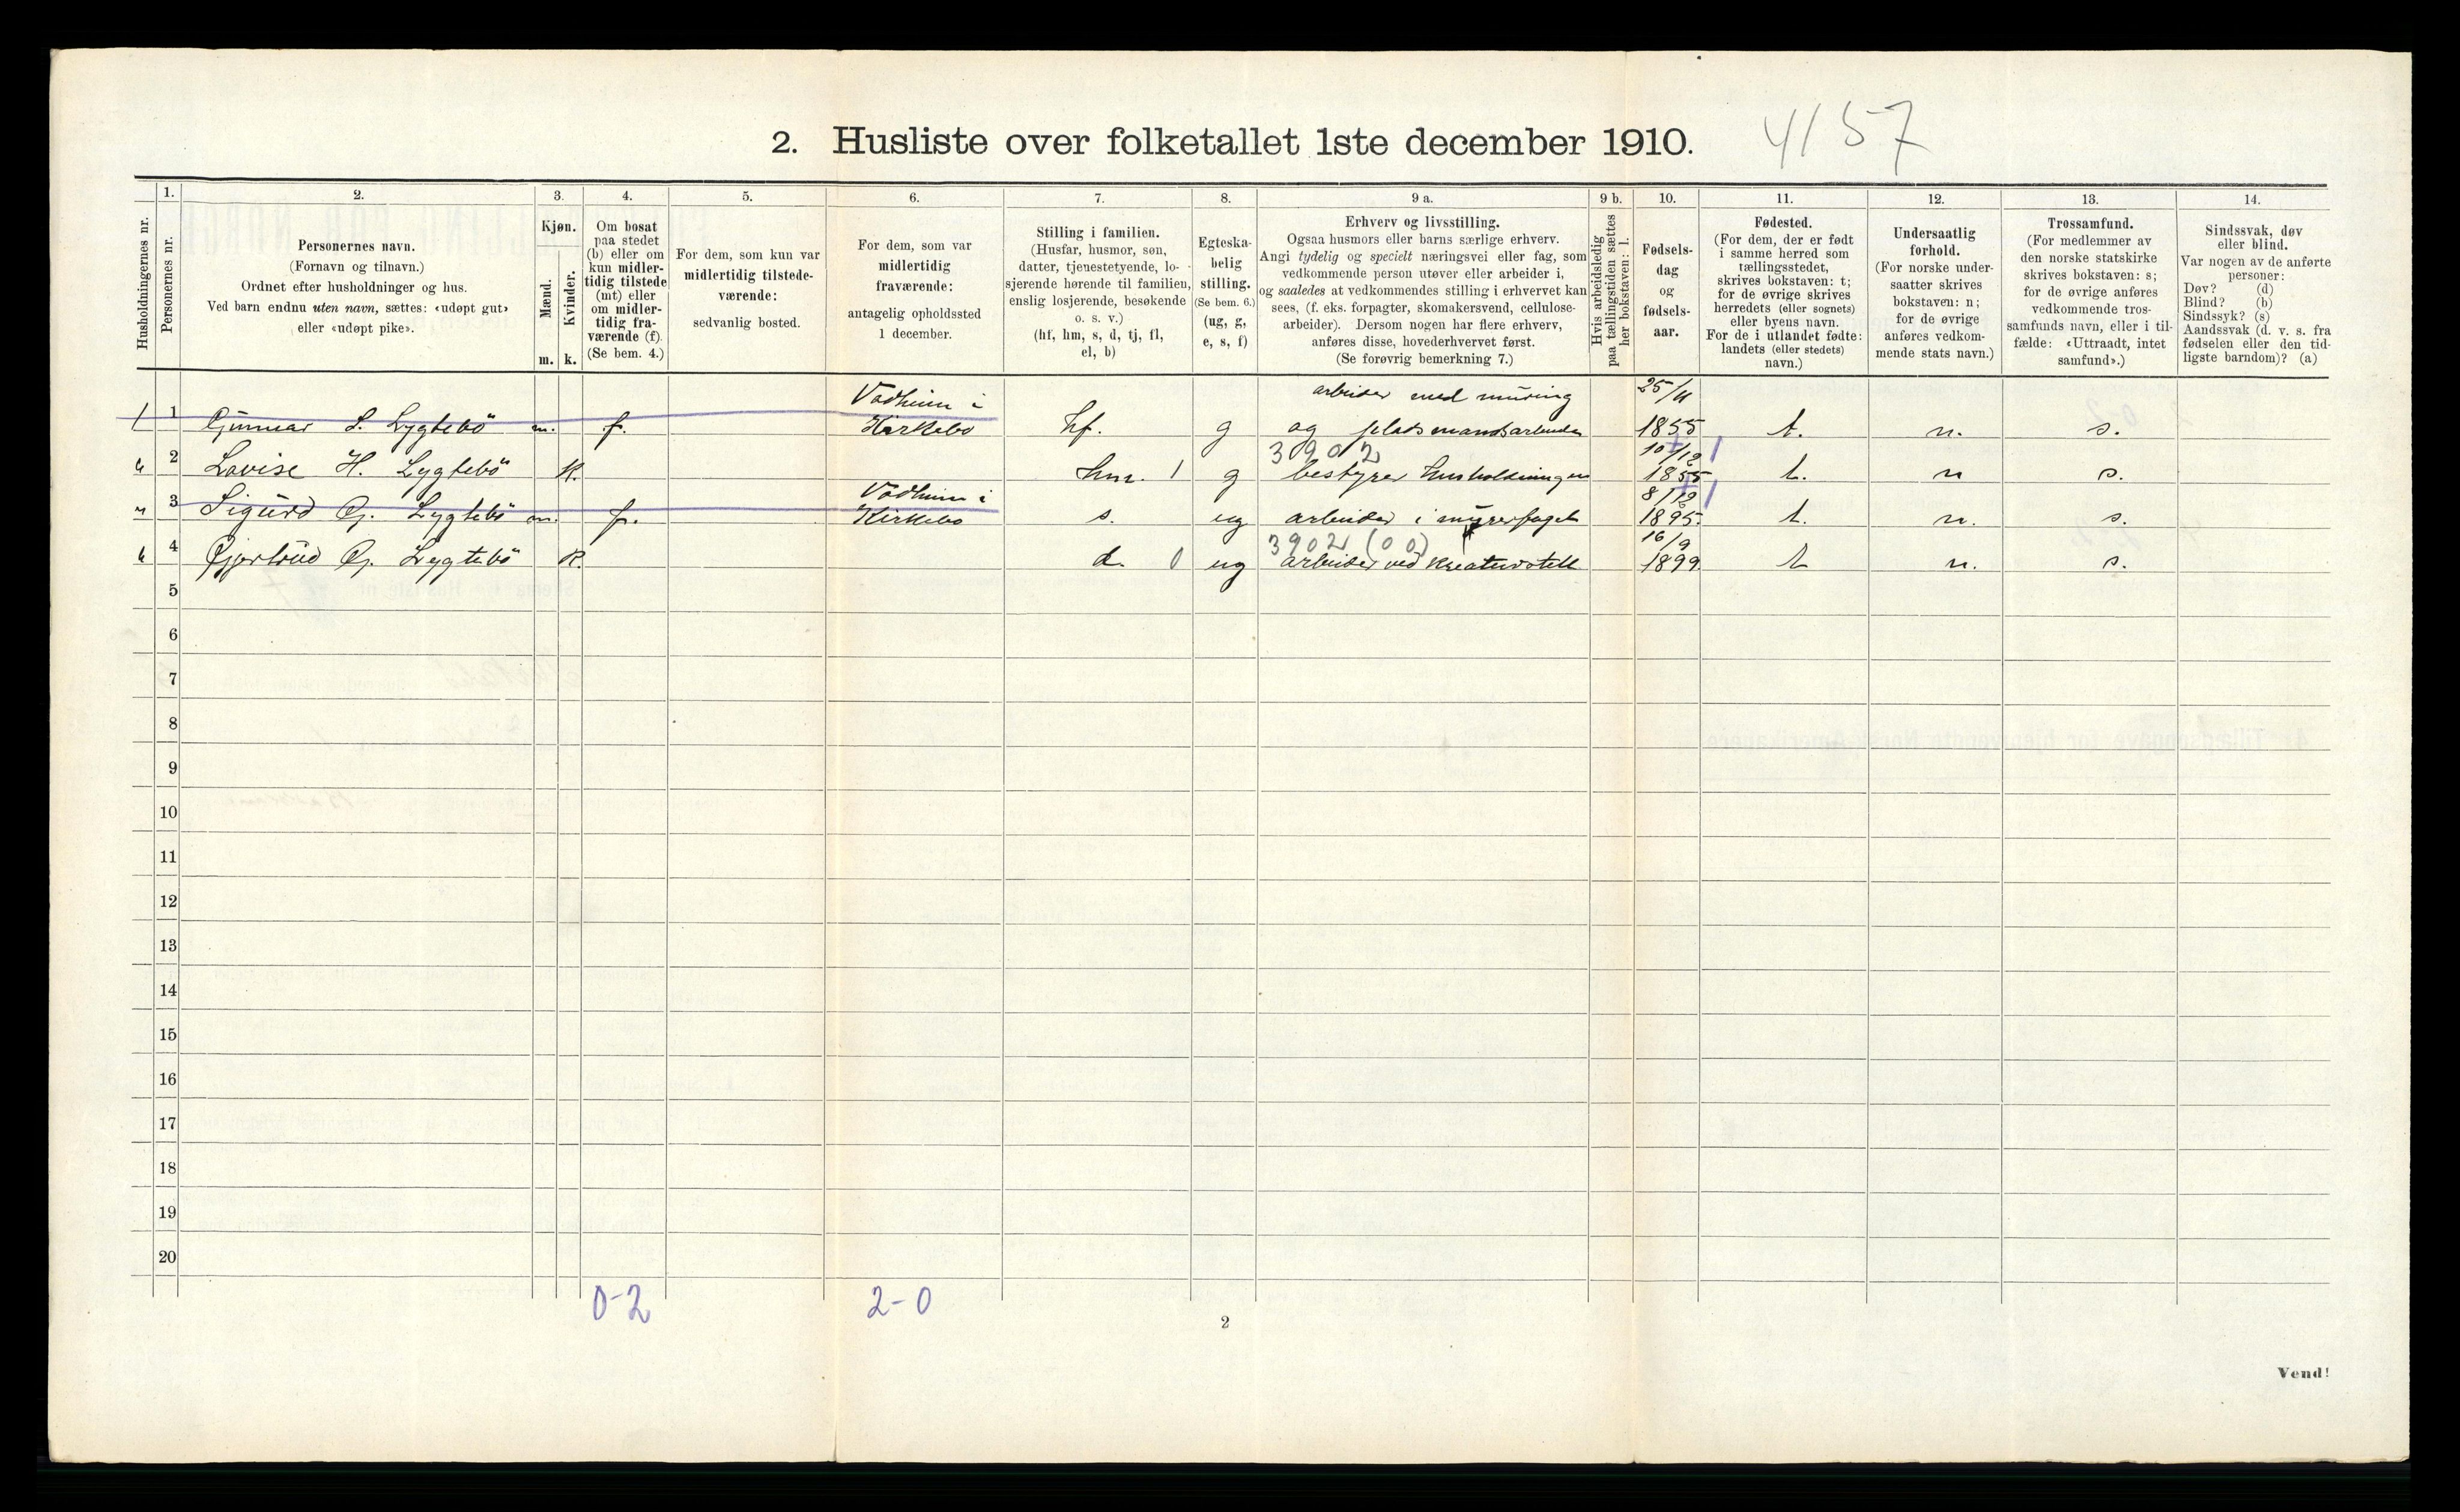 2. Husliste over folketallet 1ste december 1910.
4157
Husholdningernes nr.
1.
Personernes nr.
2.
Personernes navn.
(Fornavn og tilnavn.)
Ordnet efter husholdninger og hus.
Ved barn endnu uten navn, sættes: «udøpt gut»
eller «udøpt pike».
3.
Kjøn.
Mænd.
Kvinder.
m. k.
4.
Om bosat
paa stedet
(b) eller om
kun midler-
tidig tilstede
(mt) eller
om midler-
tidig fra-
værende (f).
(Se bem. 4.)
5.
For dem, som kun var
midlertidig tilstede-
værende:
sedvanlig bosted.
6.
For dem, som var
midlertidig
fraværende:
antagelig opholdssted
1 december.
7.
Stilling i familien.
(Husfar, husmor, søn,
datter, tjenestetyende, lo-
sjerende hørende til familien,
enslig losjerende, besøkende
o. s. v.)
(hf, hm, s, d, tj, fl,
el, b)
8.
Egteska-
belig
stilling.
(Se bem. 6.)
(ug, g,
e, s, f)
9 a.
Erhverv og livsstilling.
Ogsaa husmors eller barns særlige erhverv.
Angi tydelig og specielt næringsvei eller fag, som
vedkommende person utøver eller arbeider i,
og saaledes at vedkommendes stilling i erhvervet kan
sees, (f. eks. forpagter, skomakersvend, cellulose-
arbeider). Dersom nogen har flere erhverv,
anføres disse, hovederhvervet først.
(Se forøvrig bemerkning 7.)
9 b.
Hvis arbeidsledig
paa tællingstiden sættes
her bokstaven: l.
10.
Fødsels-
dag
og
fødsels-
aar.
11.
Fødested.
(For dem, der er født
i samme herred som
tællingsstedet,
skrives bokstaven: t;
for de øvrige skrives
herredets (eller sognets)
eller byens navn.
For de i utlandet fødte:
landets (eller stedets)
navn.)
12.
Undersaatlig
forhold.
(For norske under-
saatter skrives
bokstaven: n;
for de øvrige
anføres vedkom-
mende stats navn.)
13.
Trossamfund.
(For medlemmer av
den norske statskirke
skrives bokstaven: s;
for de øvrige anføres
vedkommende tros-
samfunds navn, eller i til-
fælde: «Uttraadt, intet
samfund».)
14.
Sindssvak, døv
eller blind.
Var nogen av de anførte
personer:
Døv? (d)
Blind? (b)
Sindssyk? (s)
Aandssvak (d. v. s. fra
fødselen eller den tid-
ligste barndom)? (a)
Vadheim i arbeider med muring 25/11
1 1 Gunnar S. Lygtebö m. f. Kirkebö hf. g og pladsmandsarbeider 1855 t. n. s.
3902 10/12
" 2 Lovise H. Lygtebö k. hm. 1 g bestyrer husholdningen 1855 t. n s.
Vadheim i 8/12
" 3 Sigurd G. Lygtebö m. f. Kirkebö s. ug arbeider i murerfaget 1895 t. n. s.
3902 (00) 16/9
" 4 Gjertrud G. Lygtebö k. d. 0 ug arbeider ved kreaturstell 1899 t n. s.
5
6
7
8
9
10
11
12
13
14
15
16
17
18
19
20
0-2 2-0
2
Vend!